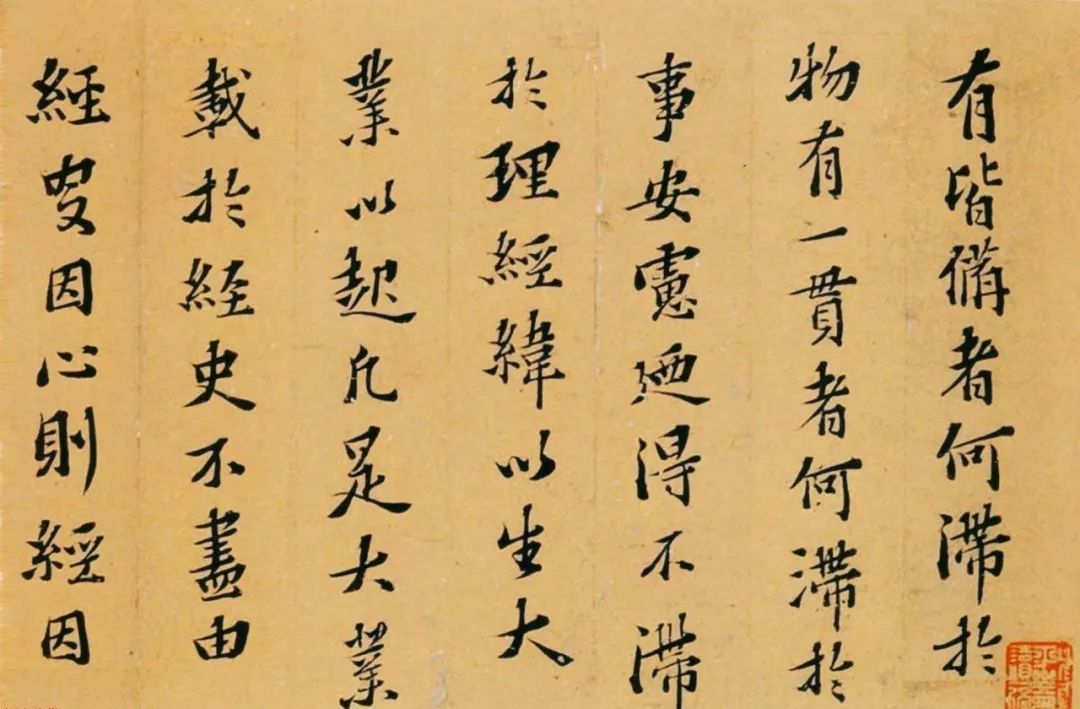 有皆備者何滯於
物有一貫者何滯於
事安慮廼得不滯
於理經緯以生大
業以起凡是大業
載於經史不盡由
經因心則經因